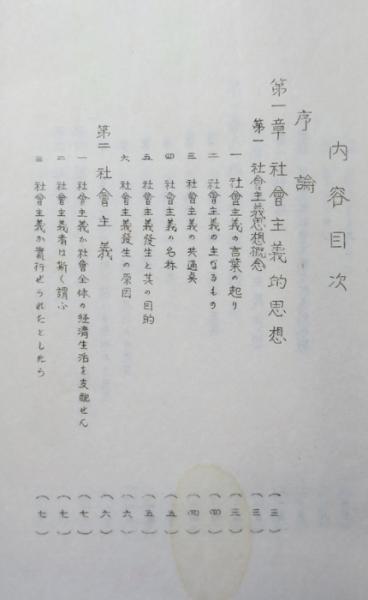 内容目次
序論
第一章 社會主義的思想 (三)
第一 社會主義思想概念 (三)
一 社會主義の言葉の起り (三)
二 社會主義の主なるもの (四)
三 社會主義の共通奌 (四)
四 社會主義の名称 (五)
五 社會主義發生と其の目的 (五)
六 社會主義發生の原因 (六)
第二 社會主義 (六)
一 社會主義が社會全体の経済生活を支配せん (七)
二 社會主義者は斯く謂ふ (七)
三 社會主義が實行せられたとしたら (七)